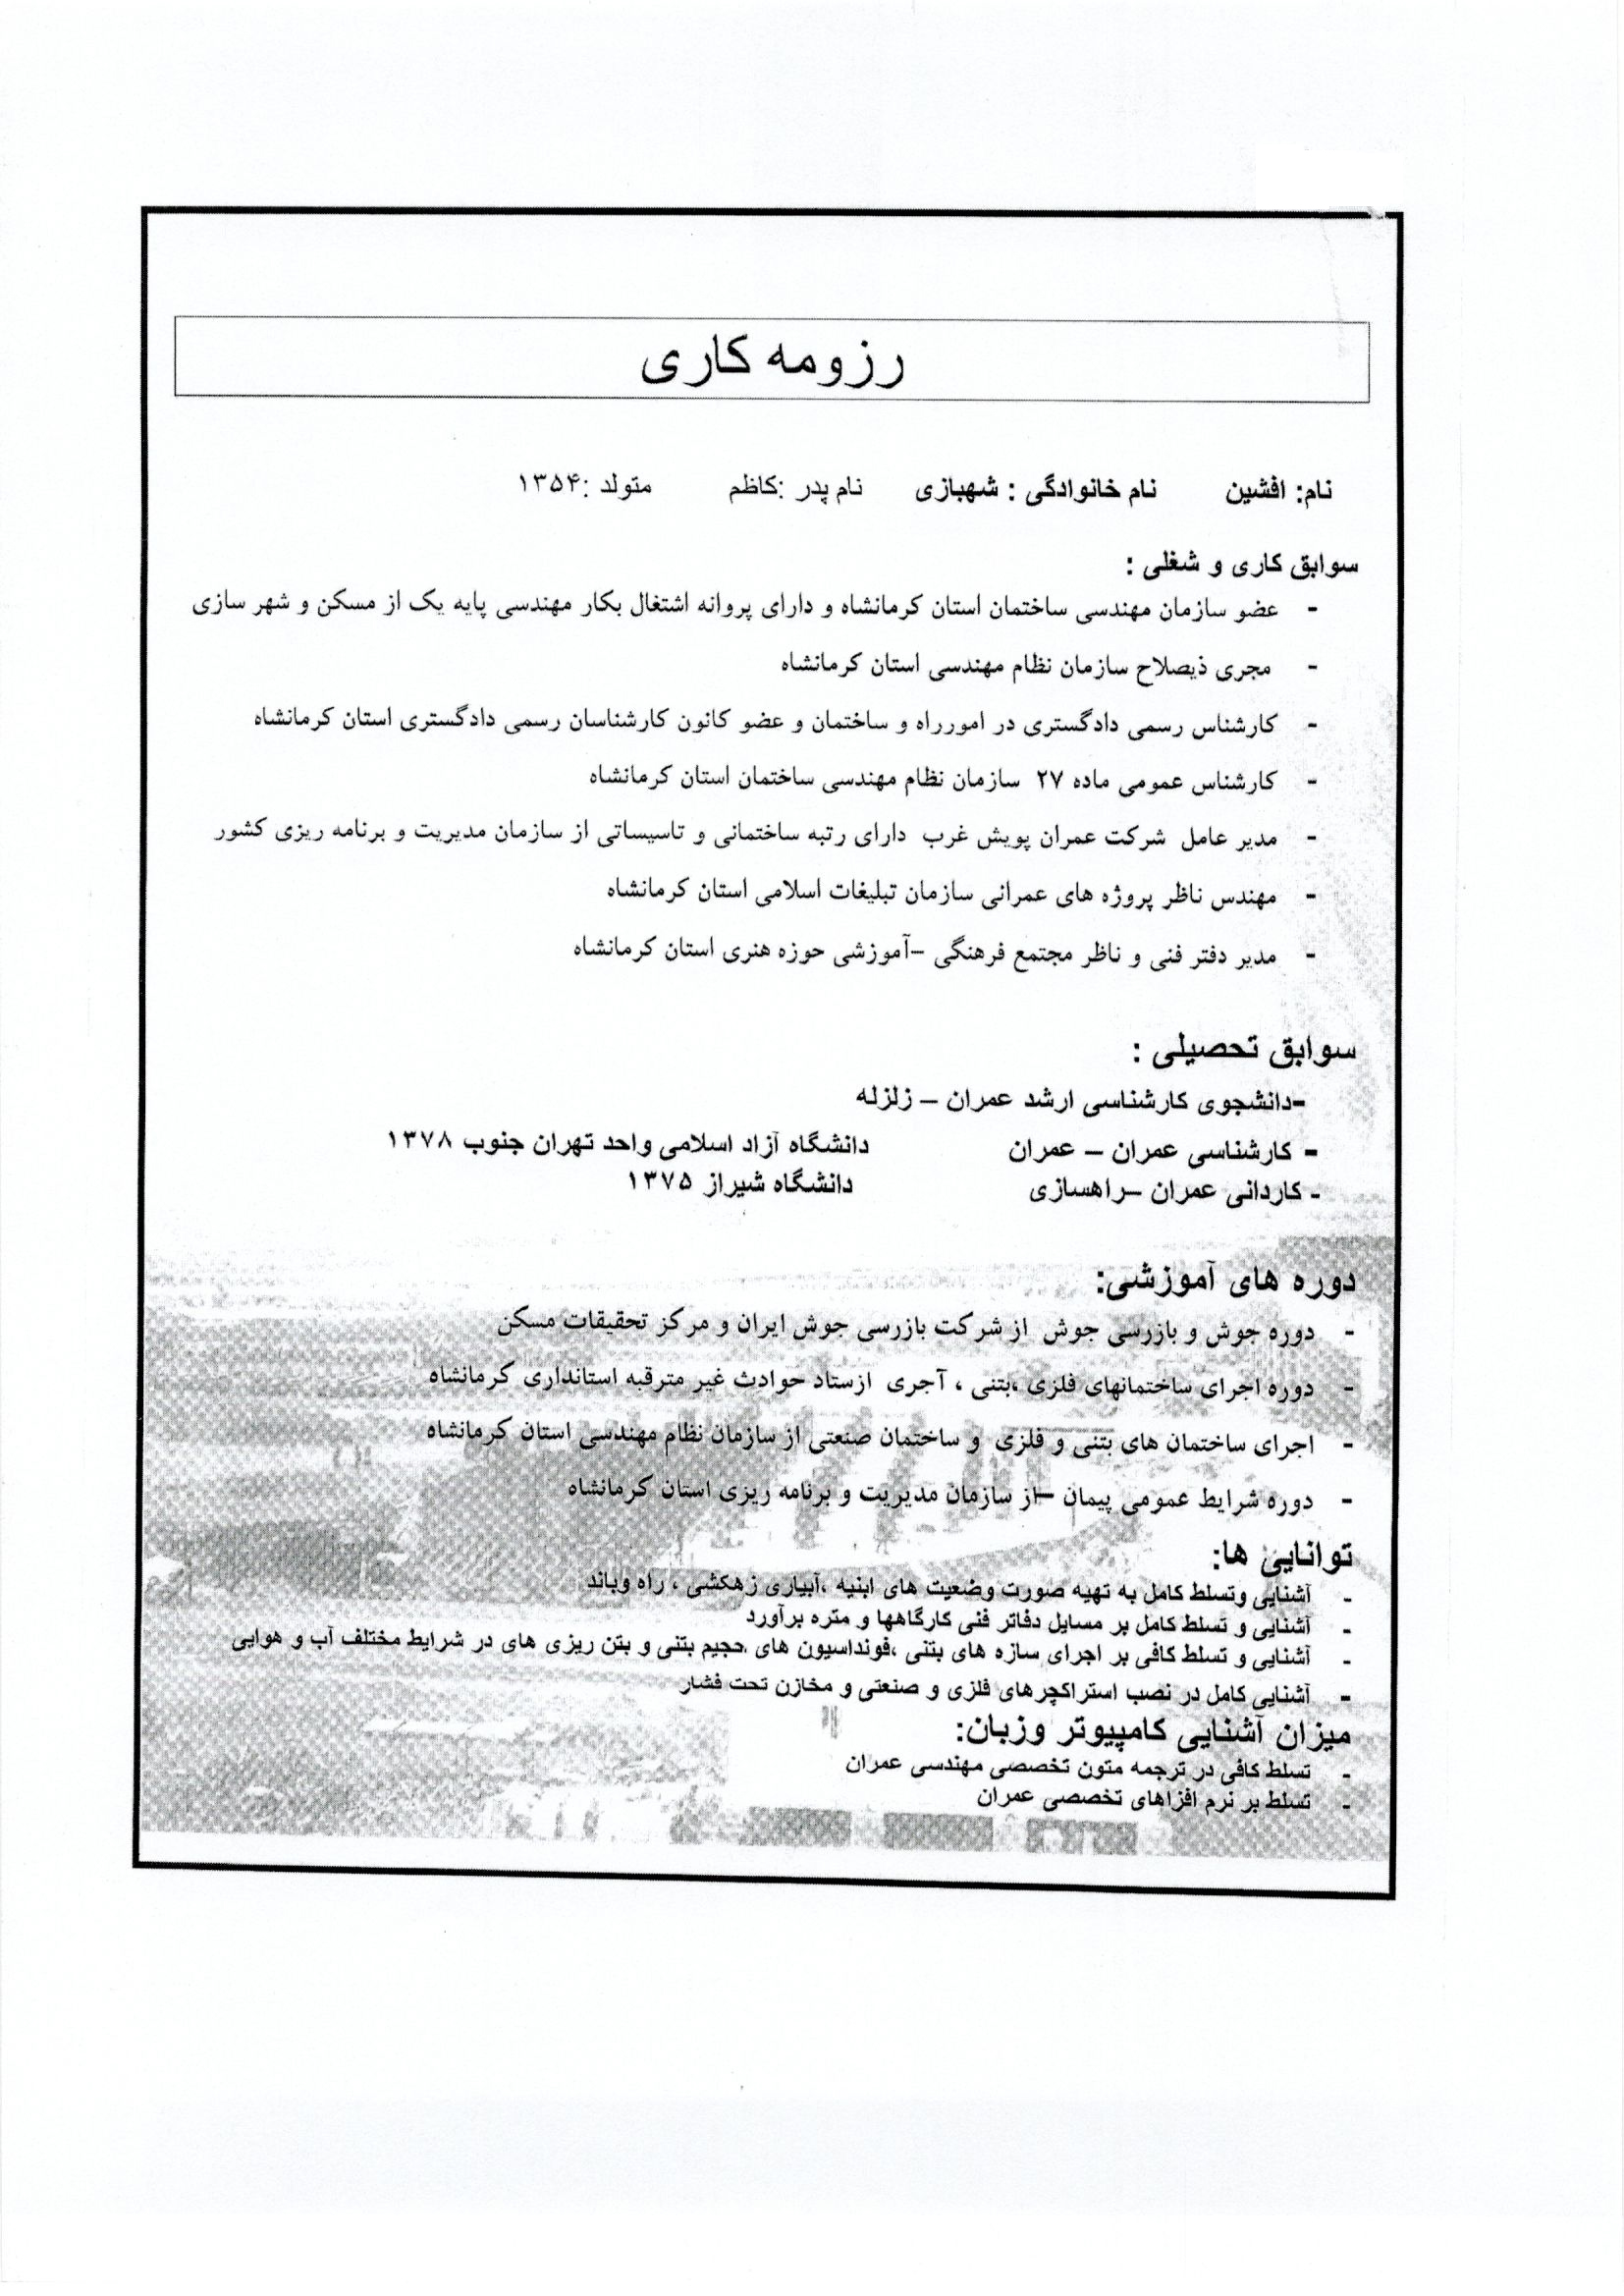 رزومه کاری
نام: افشین نام خانوادگی : شهبازی نام پدر :کاظم متولد :۱۳۵۴
سوابق کاری و شغلی :
- عضو سازمان مهندسی ساختمان استان کرمانشاه و دارای پروانه اشتغال بکار مهندسی پایه یک از مسکن و شهر سازی
- مجری ذیصلاح سازمان نظام مهندسی استان کرمانشاه
- کارشناس رسمی دادگستری در امورراه و ساختمان و عضو کانون کارشناسان رسمی دادگستری استان کرمانشاه
- کارشناس عمومی ماده ۲۷ سازمان نظام مهندسی ساختمان استان کرمانشاه
- مدیر عامل شرکت عمران پویش غرب دارای رتبه ساختمانی و تاسیساتی از سازمان مدیریت و برنامه ریزی کشور
- مهندس ناظر پروژه های عمرانی سازمان تبلیغات اسلامی استان کرمانشاه
- مدیر دفتر فنی و ناظر مجتمع فرهنگی –آموزشی حوزه هنری استان کرمانشاه
سوابق تحصیلی :
-دانشجوی کارشناسی ارشد عمران – زلزله
- کارشناسی عمران – عمران دانشگاه آزاد اسلامی واحد تهران جنوب ۱۳۷۸
- کاردانی عمران –راهسازی دانشگاه شیراز ۱۳۷۵
دوره های آموزشی:
- دوره جوش و بازرسی جوش از شرکت بازرسی جوش ایران و مرکز تحقیقات مسکن
- دوره اجرای ساختمانهای فلزی ،بتنی ، آجری ازستاد حوادث غیر مترقبه استانداری کرمانشاه
- اجرای ساختمان های بتنی و فلزی و ساختمان صنعتی از سازمان نظام مهندسی استان کرمانشاه
- دوره شرایط عمومی پیمان –از سازمان مدیریت و برنامه ریزی استان کرمانشاه
توانایی ها:
- آشنایی وتسلط کامل به تهیه صورت وضعیت های ابنیه ،آبیاری زهکشی ، راه وباند
- آشنایی و تسلط کامل بر مسایل دفاتر فنی کارگاهها و متره برآورد
- آشنایی و تسلط کافی بر اجرای سازه های بتنی ،فونداسیون های حجیم بتنی و بتن ریزی های در شرایط مختلف آب و هوایی
- آشنایی کامل در نصب استراکچرهای فلزی و صنعتی و مخازن تحت فشار
میزان آشنایی کامپیوتر وزبان:
- تسلط کافی در ترجمه متون تخصصی مهندسی عمران
- تسلط بر نرم افزاهای تخصصی عمران